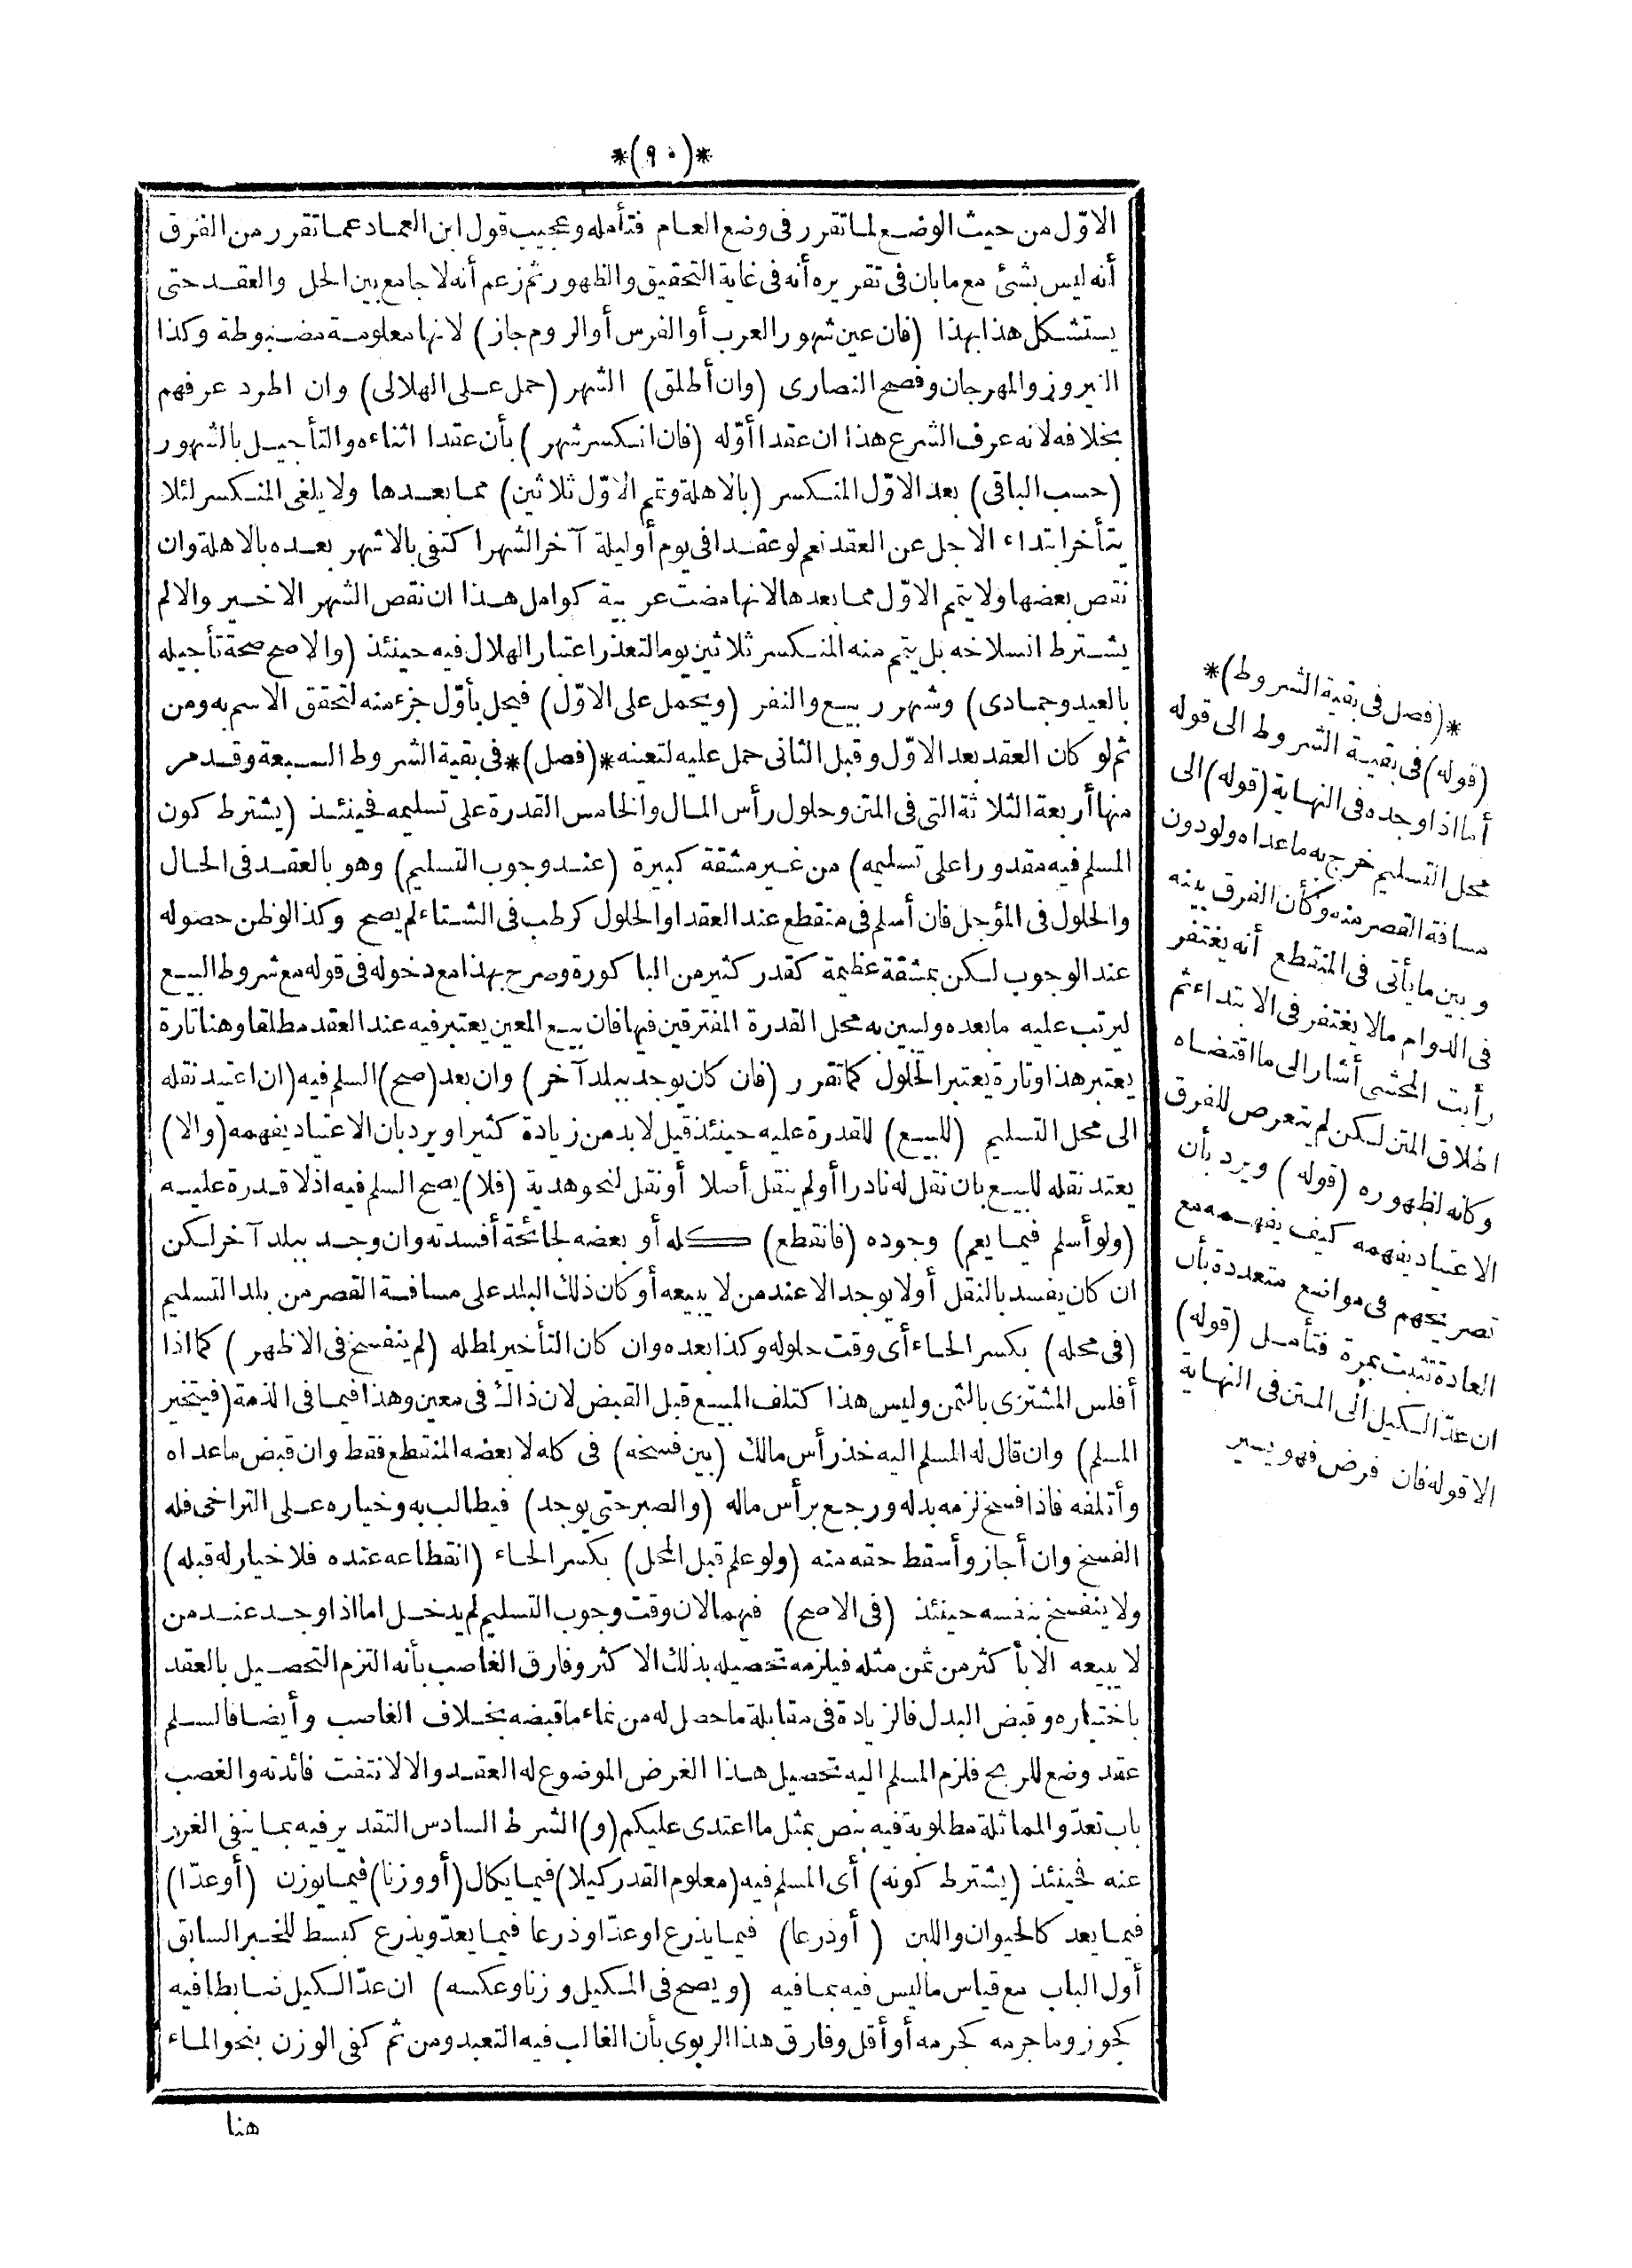 *(٩٠)*
الاوّل من حيث الوضع لما تقرر فى وضع العام فتأمله وعجيب قول ابن العماد عما تقرر من الفرق
أنه ليس بشئ مع ما بان فى تقريره أنه فى غاية التحقيق والظهور ثم زعم أنه لا جامع بين الحل والعقد حتى
يستشكل هذا بهذا (فان عين شهور العرب أو الفرس أو الروم جاز) لانها معلومة مضبوطة وكذا
النيروز والمهرجان وفصح النصارى (وان أطلق) الشهر (حمل على الهلالى) وان اطرد عرفهم
بخلافه لانه عرف الشرع هذا ان عقدا أوّله (فان انكسر شهر) بأن عقدا اثناءه والتأجيل بالشهور
(حسب الباقى) بعد الاوّل المنكسر (بالاهلة وتمم الاوّل ثلاثين) مما بعدها ولا يلغى المنكسر لئلا
يتأخر ابتداء الاجل عن العقد نعم لو عقدا فى يوم أو ليلة آخر الشهر اكتفى بالاشهر بعده بالاهلة وان
نقص بعضها ولا يتمم الاوّل مما بعدها لانها مضت عربية كوامل هذا ان نقص الشهر الاخير والالم
يشترط انسلاخه بل يتمم منه المنكسر ثلاثين يوما لتعذر اعتبار الهلال فيه حينئذ (والاصح صحة تأجيله
بالعيد وجمادى) وشهر ربيع والنفر (ويحمل على الاوّل) فيحل بأوّل جزء منه لتحقق الاسم به ومن
ثم لو كان العقد بعد الاوّل وقبل الثانى حمل عليه لتعينه *(فصل)* فى بقية الشروط السبعة وقد مر
منها أربعة الثلاثة التى فى المتن وحلول رأس المال والخامس القدرة على تسليمه فحينئذ (يشترط كون
المسلم فيه مقدورا على تسليمه) من غير مشقة كبيرة (عند وجوب التسليم) وهو بالعقد فى الحال
والحلول فى المؤجل فان أسلم فى منقطع عند العقد او الحلول كرطب فى الشتاء لم يصح وكذا لو ظن حصوله
عند الوجوب لكن بمشقة عظيمة كقدر كثير من الباكورة وصرح بهذا مع دخوله فى قوله مع شروط البيع
ليرتب عليه ما بعده وليبين به محل القدرة المفترقين فيها فان بيع المعين يعتبر فيه عند العقد مطلقا وهنا تارة
يعتبر هذا وتارة يعتبر الحلول كما تقرر (فان كان يوجد ببلد آخر) وان بعد (صح) السلم فيه (ان اعتيد نقله
الى محل التسليم (للبيع) للقدرة عليه حينئذ قيل لا بد من زيادة كثيرا ويرد بان الاعتياد يفهمه (والا)
يعتد نقله للبيع بان نقل له نادرا أو لم ينقل أصلا أو نقل لنحو هدية (فلا) يصح السلم فيه اذ لا قدرة عليه
(ولو أسلم فيما يعم) وجوده (فانقطع) كله أو بعضه لجائحة أفسدته وان وجد ببلد آخر لكن
ان كان يفسد بالنقل أو لا يوجد الا عند من لا يبيعه أو كان ذلك البلد على مسافة القصر من بلد التسليم
(فى محله) بكسر الحاء أى وقت حلوله وكذا بعده وان كان التأخير لمطله (لم ينفسخ فى الاظهر) كما اذا
أفلس المشترى بالثمن وليس هذا كتلف المبيع قبل القبض لان ذاك فى معين وهذا فيما فى الذمة (فيتخير
المسلم) وان قال له المسلم اليه خذ رأس مالك (بين فسخه) فى كله لا بعضه المنقطع فقط وان قبض ما عداه
وأتلفه فاذا فسخ لزمه بدله ورجع برأس ماله (والصبر حتى يوجد) فيطالب به وخياره على التراخى فله
الفسخ وان أجاز وأسقط حقه منه (ولو علم قبل المحل) بكسر الحاء (انقطاعه عنده فلا خيار له قبله)
ولا ينفسخ بنفسه حينئذ (فى الاصح) فيهما لان وقت وجوب التسليم لم يدخل اما اذا وجد عند من
لا يبيعه الا بأكثر من ثمن مثله فيلزمه تحصيله بذلك الاكثر وفارق الغاصب بأنه التزم التحصيل بالعقد
باختياره وقبض البدل فالزيادة فى مقابلة ما حصل له من نماء ما قبضه بخلاف الغاصب وأيضا فالسلم
عقد وضع للربح فلزم المسلم اليه تحصيل هذا الغرض الموضوع له العقد والا لانتفت فائدته والغصب
باب تعدّ والمماثلة مطلوبة فيه بنص بمثل ما اعتدى عليكم (و) الشرط السادس التقدير فيه بما ينفى الغرر
عنه فحينئذ (يشترط كونه) أى المسلم فيه (معلوم القدر كيلا) فيما يكال (أو وزنا) فيما يوزن (أو عدّا)
فيما يعد كالحيوان واللبن (أو ذرعا) فيما يذرع او عدّا وذرعا فيما يعدّ ويذرع كبسط للخبر السابق
أول الباب مع قياس ما ليس فيه بما فيه (ويصح فى المكيل وزنا وعكسه) ان عدّ الكيل ضابطا فيه
كجوز وما جرمه كجرمه أو أقل وفارق هذا الربوى بأن الغالب فيه التعبد ومن ثم كفى الوزن بنحو الماء
هنا
*(فصل فى بقية الشروط)*
(قوله) فى بقية الشروط الى قوله
أما اذا وجده فى النهاية (قوله) الى
محل التسليم خرج به ما عداه ولو دون
مسافة القصر منه وكأن الفرق بينه
وبين ما يأتى فى المنقطع أنه يغتفر
فى الدوام ما لا يغتفر فى الابتداء ثم
رأيت المحشى أشار الى ما اقتضاه
اطلاق المتن لكن لم يتعرض للفرق
وكأنه لظهوره (قوله) ويرد بأن
الاعتياد يفهمه كيف يفهمه مع
تصريحهم فى مواضع متعددة بأن
العادة تثبت بمرة فتأمل (قوله)
ان عدّ الكيل الى المتن فى النهاية
الا قوله فان فرض فهو يسير